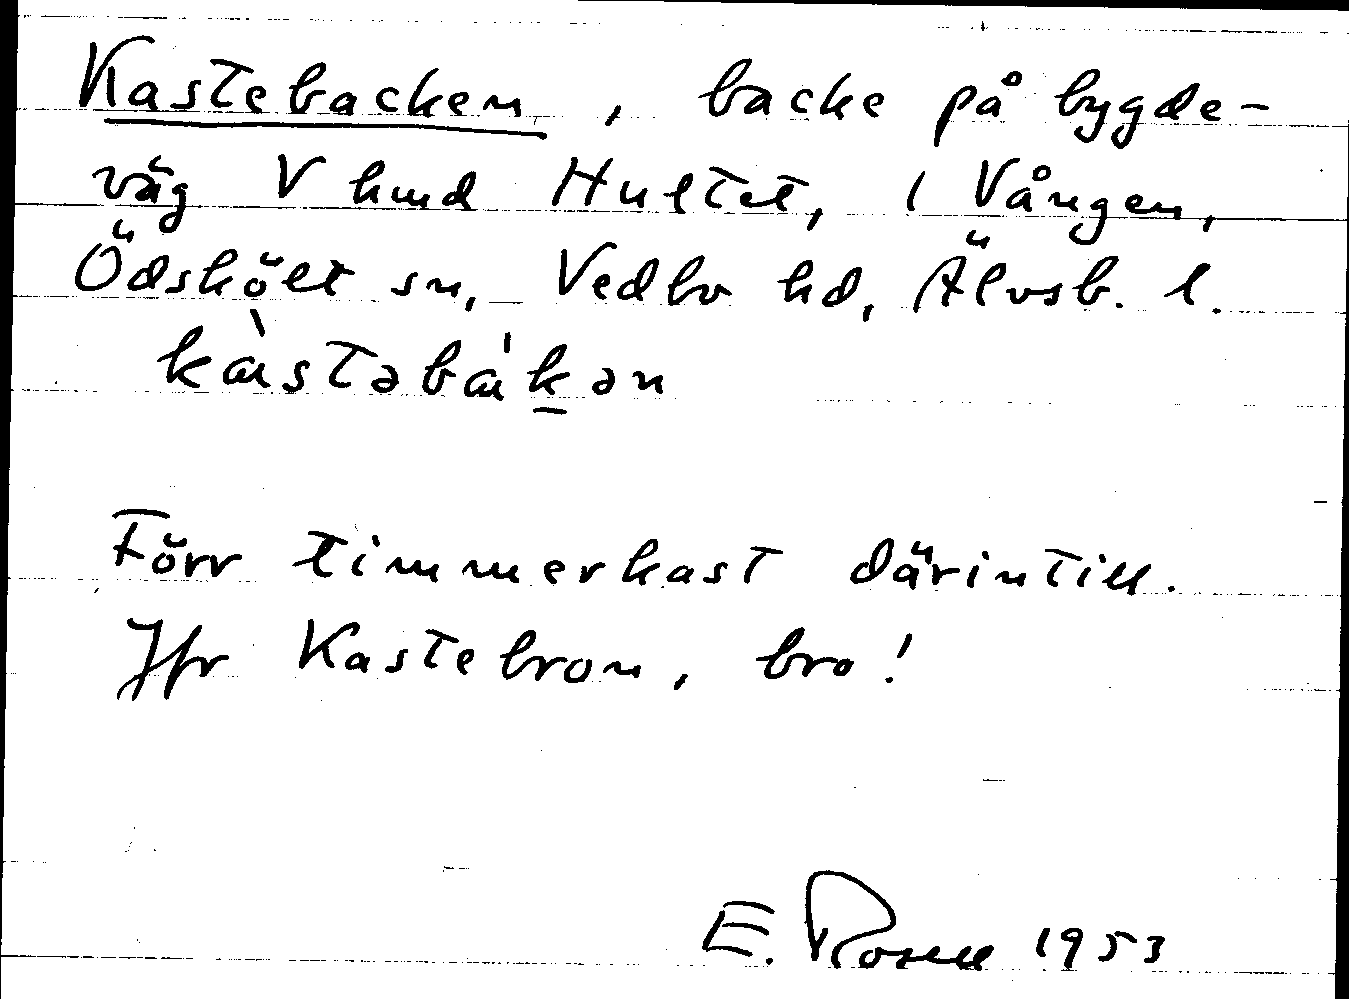 Kastebacken, backe på bygde-
väg V hmd Hultet, i Vången,
Ödskölt sn, Vedbo hd, Älvsb. l.
kàstəbák̲ən
Förr timmerkast därintill.
Jfr Kastebron, bro!
E. Rosell 1953